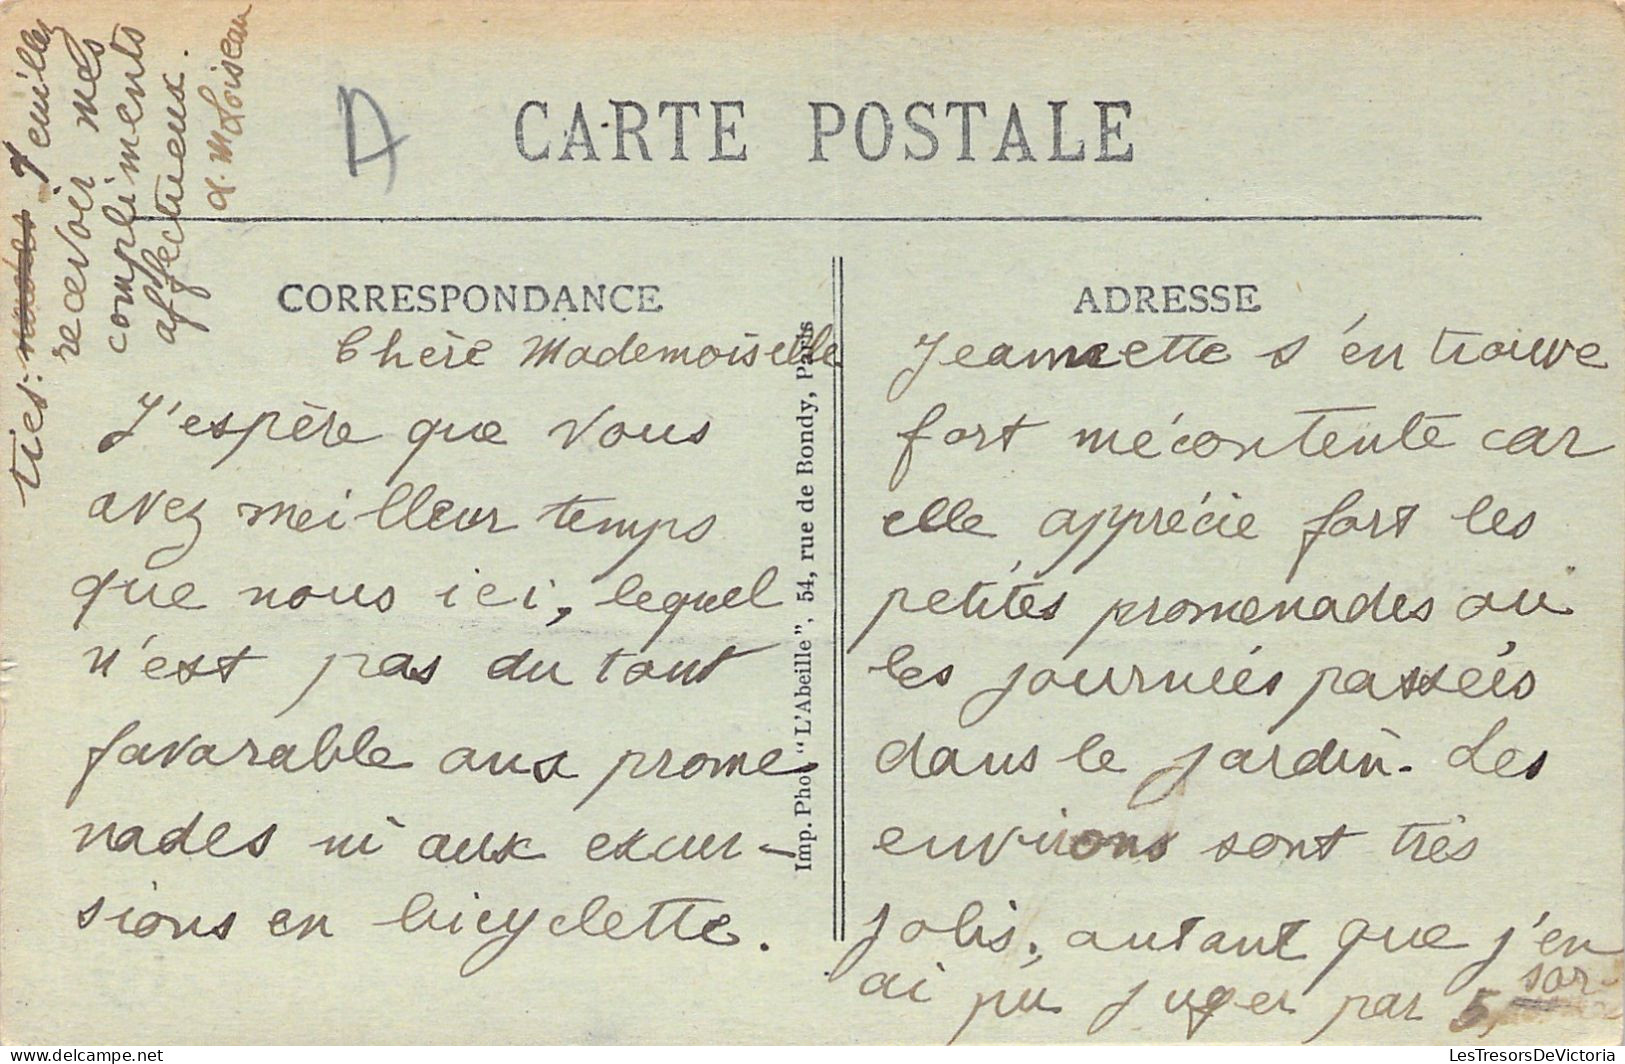 CARTE POSTALE
A
CORRESPONDANCE
Chère Mademoiselle
J'espère que vous
avez meilleur temps
que nous ici, lequel
n'est pas du tout
favorable aux prome
nades ni aux excur-
sions en bicyclette.
Imp. Phot. "L'Abeille", 54, rue de Bondy, Paris
ADRESSE
Jeannette s'en trouve
fort mécontente car
elle apprécie fort les
petites promenades ou
les journées passées
dans le jardin. Les
environs sont très
jolis, autant que j'en
ai pu juger par 5,
sor-
ties. Veuillez
recevoir mes
compliments
affectueux.
Loiseau
LesTresorsDeVictoria